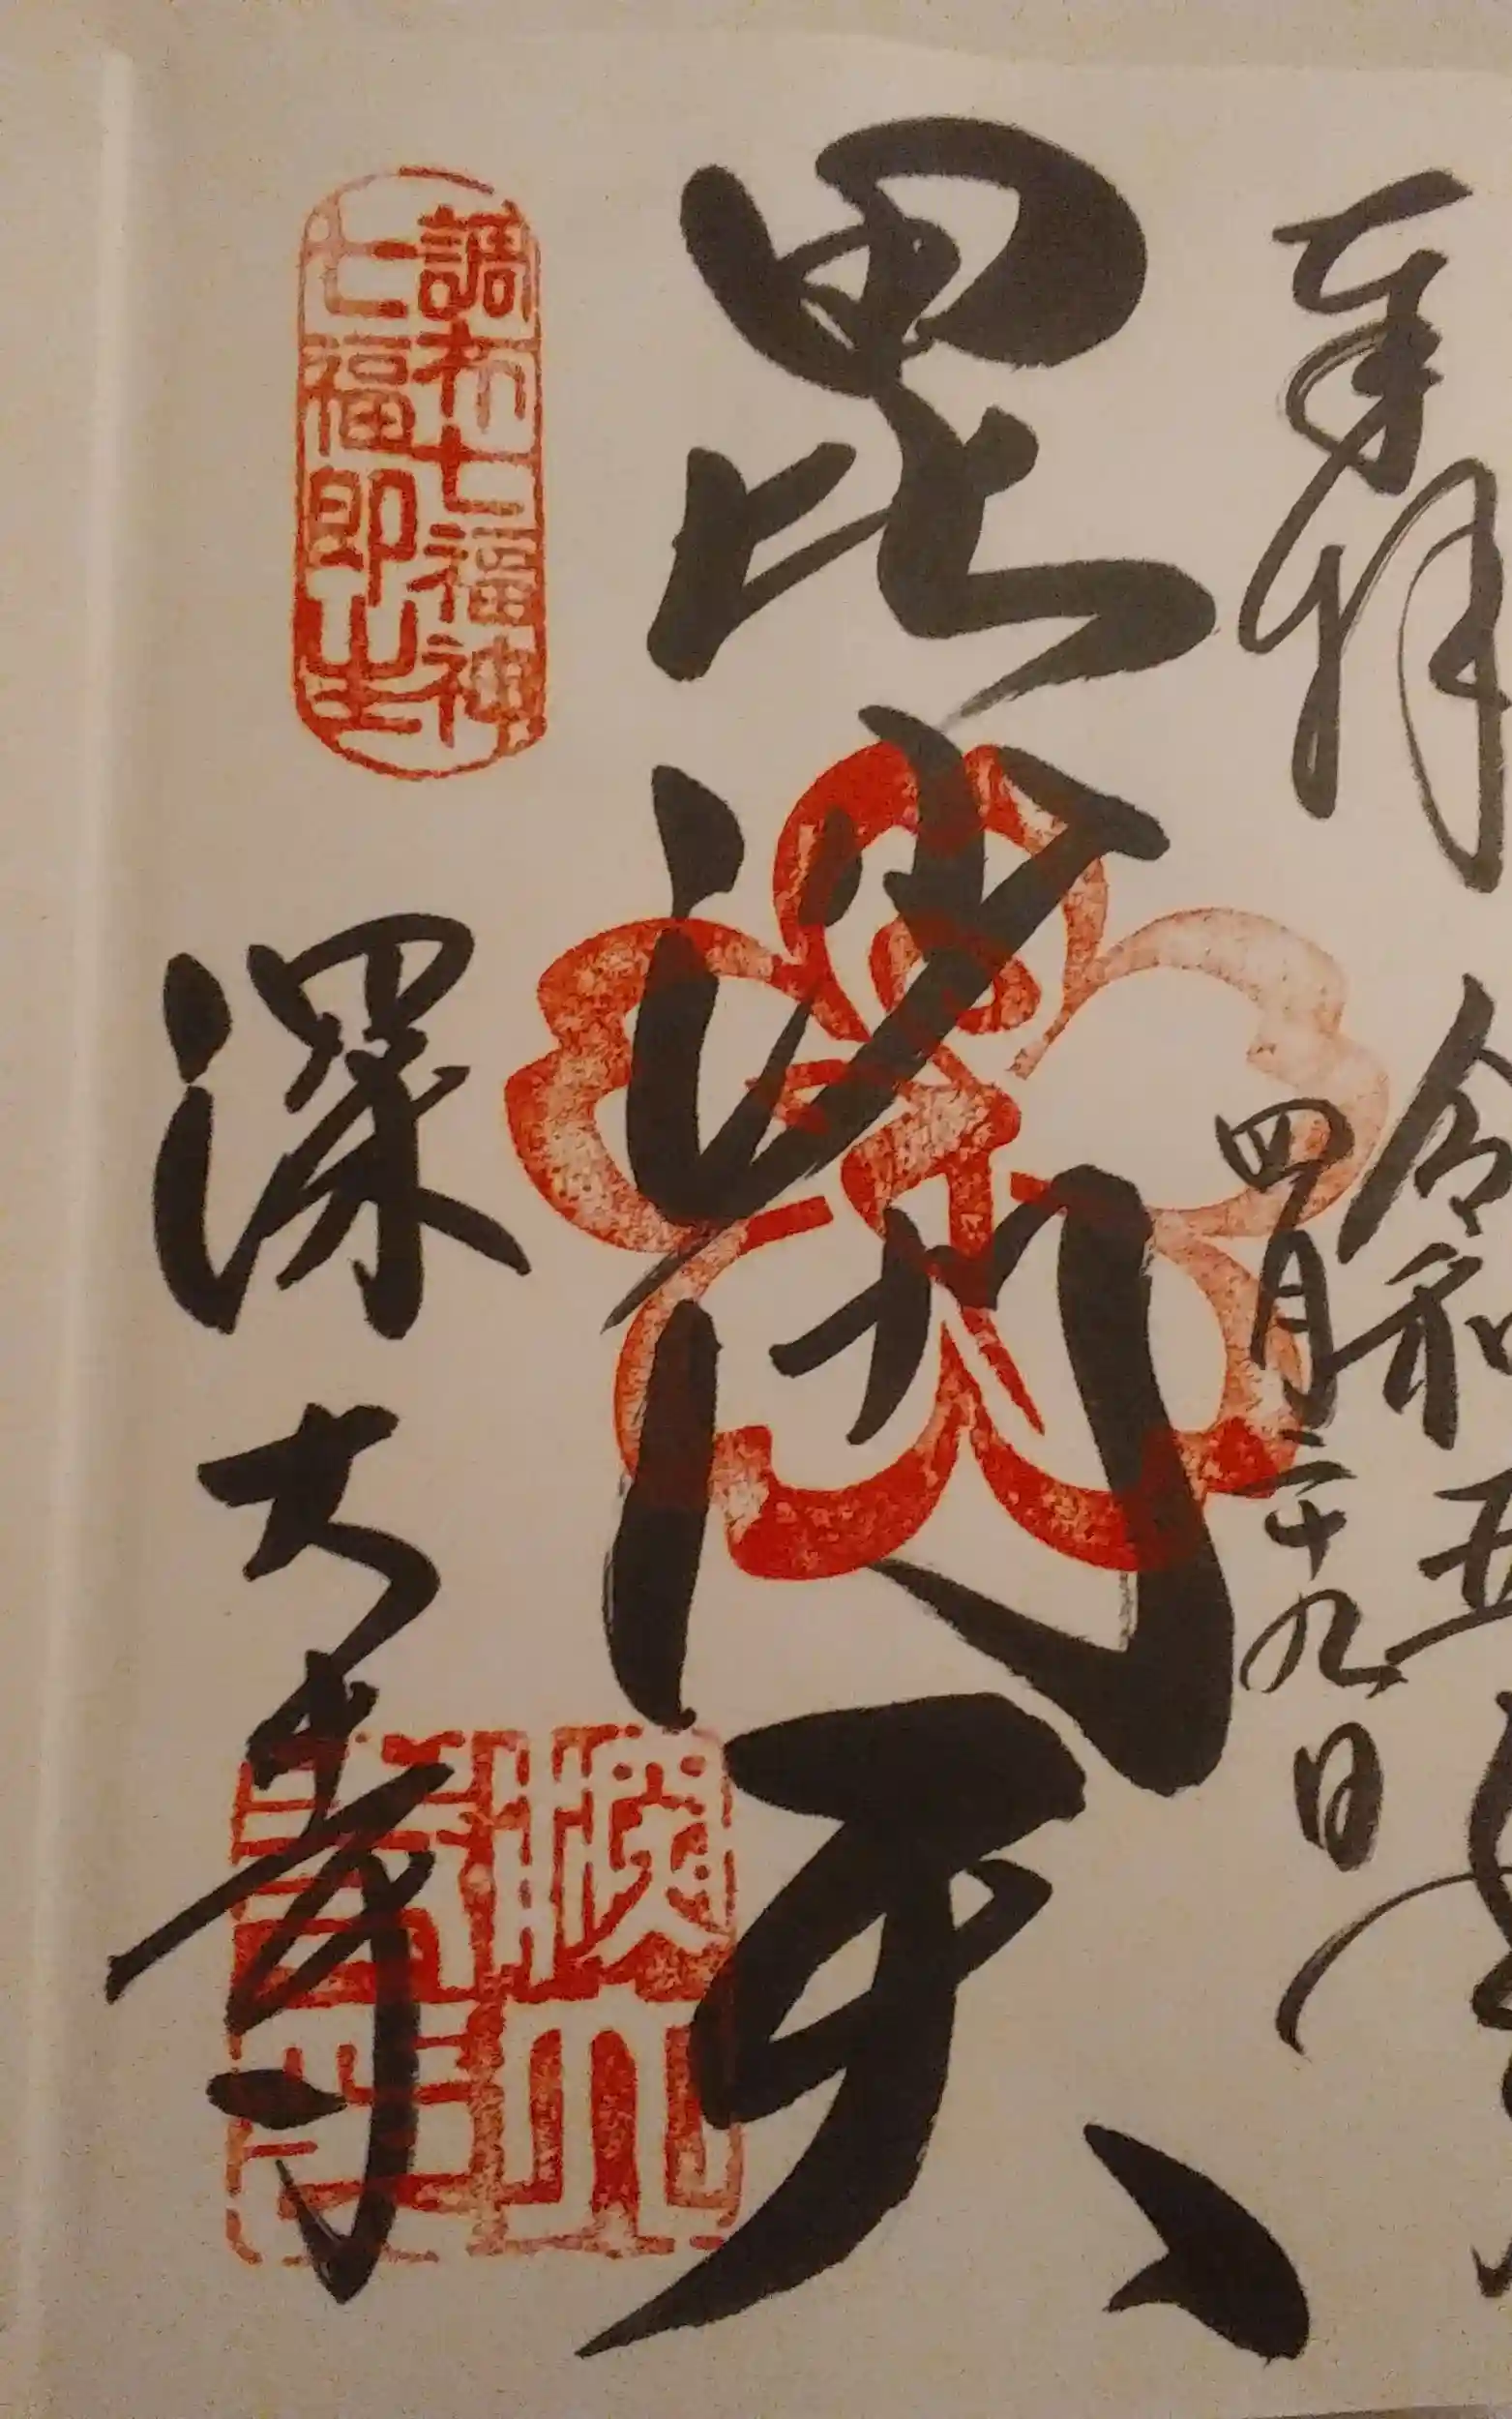 奉拝
令和五年
四月二十九日
毘沙門天
調布七福神
七福即生
深大寺